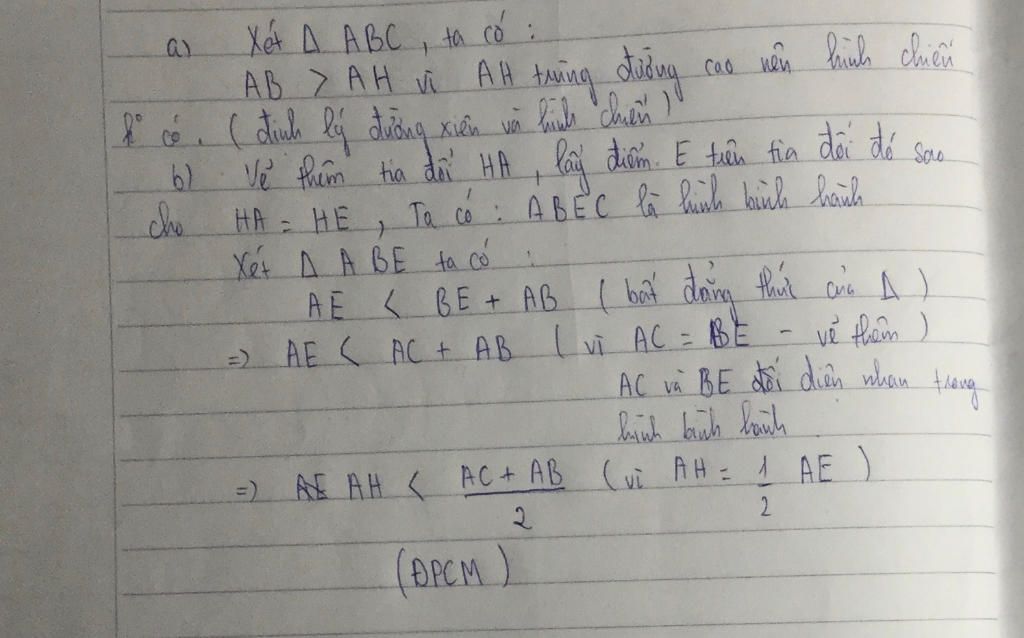 a) Xét Δ ABC, ta có :
AB > AH vì AH trùng đường cao nên hình chiếu
k° có. (định lý đường xiên và hình chiếu)
b) Vẽ thêm tia đối HA, lấy điểm E trên tia đối đó sao
cho HA = HE, Ta có : ABEC là hình bình hành
Xét Δ ABE ta có :
AE < BE + AB (bất đẳng thức của Δ)
=> AE < AC + AB (vì AC = BE - vẽ thêm)
AC và BE đối diện nhau trong
hình bình hành
=> AH < AC + AB / 2 (vì AH = 1/2 AE)
(ĐPCM)